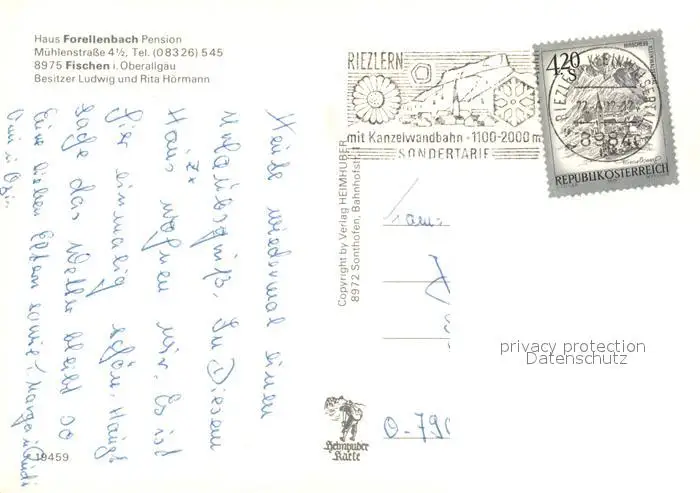 Haus Forellenbach Pension
Mühlenstraße 4½, Tel. (08326) 545
8975 Fischen i. Oberallgäu
Besitzer Ludwig und Rita Hörmann
Heute wiedermal einen
Urlaubsgruß. In Diesem
Haus wohnen wir. Es ist
hier einmalig schön. Hängt
das Wetter bleibt so
Eure lieben Eltern sowie
Omi u. Opi.
19459
Copyright by Verlag HEIMHUBER
8972 Sonthofen, Bahnhofstr.
Heimhuber
Karte
RIEZLERN
mit Kanzelwandbahn - 1100-2000 m
SONDERTARIF
4.20
S
RIEZLERN KLEINWALSERTAL
REPUBLIK ÖSTERREICH
Fam.
D-790
privacy protection
Datenschutz